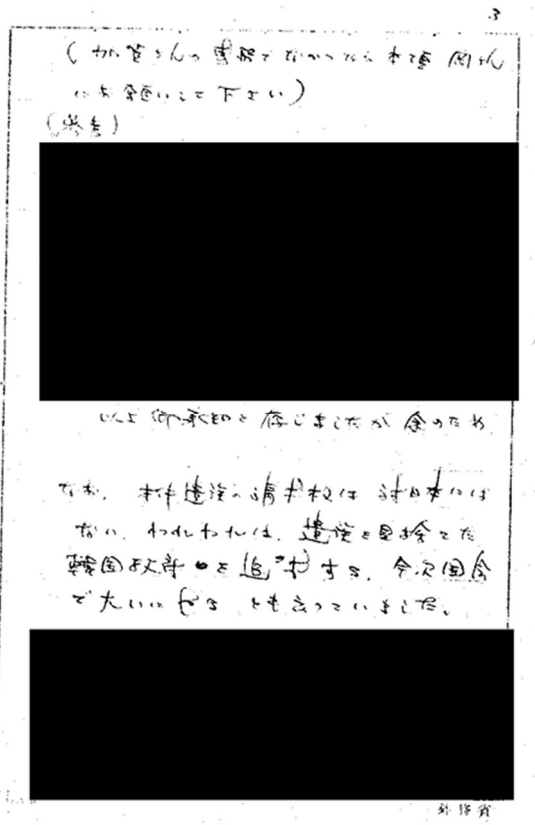 3
(加賀さんの電話でなかったら本項岡さん
にお願いして下さい)
(参考)
以上御承知と存じましたが念のため
なお、本件遺族の請求权は対日本には
ない、われわれは、遺族を見捨てた
韓国政府を追求する、今次国会
で大いにやる とも言っていました。
外務省